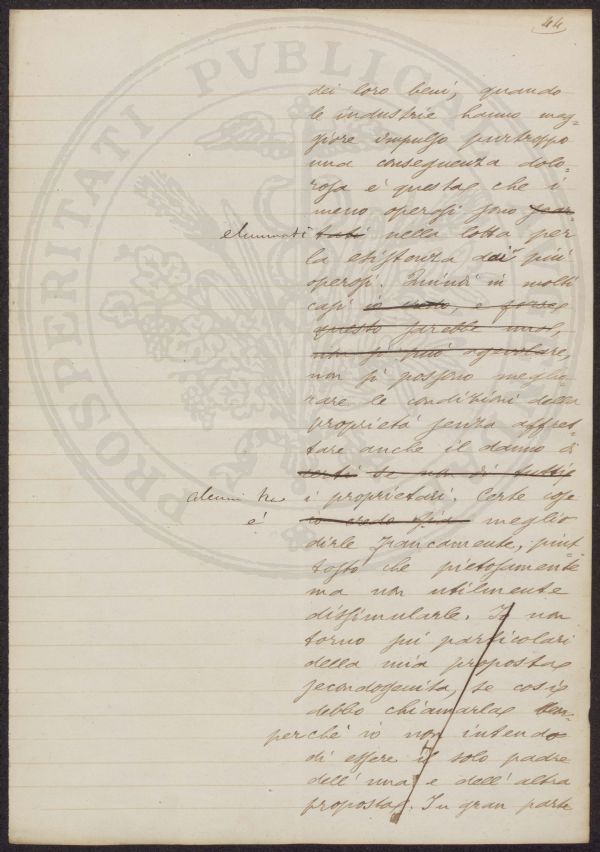 44
dei loro beni, quando
le industrie hanno mag=
giore impulso purtroppo
una conseguenza dolo=
rosa è questa, che i
meno operosi sono scar
eliminati tati nella lotta per
la esistenza dai più
operosi. Quindi in molti
casi io credo, e forse
questo sarebbe uno,
non si può agevolare,
non si possono miglio=
rare le condizioni della
proprietà senza affret=
tare anche il danno di
certi se non di tutti
alcuni tra i proprietari. Certe cose
è io credo sia meglio
dirle francamente, piut=
tosto che pietosamente
ma non utilmente
dissimularle. Io non
torno sui particolari
della mia proposta
secondogenita, se così
debbo chiamarla,
perché io non intendo
di essere il solo padre
dell'una e dell'altra
proposta. In gran parte
PROSPERITATI PVBLICAE